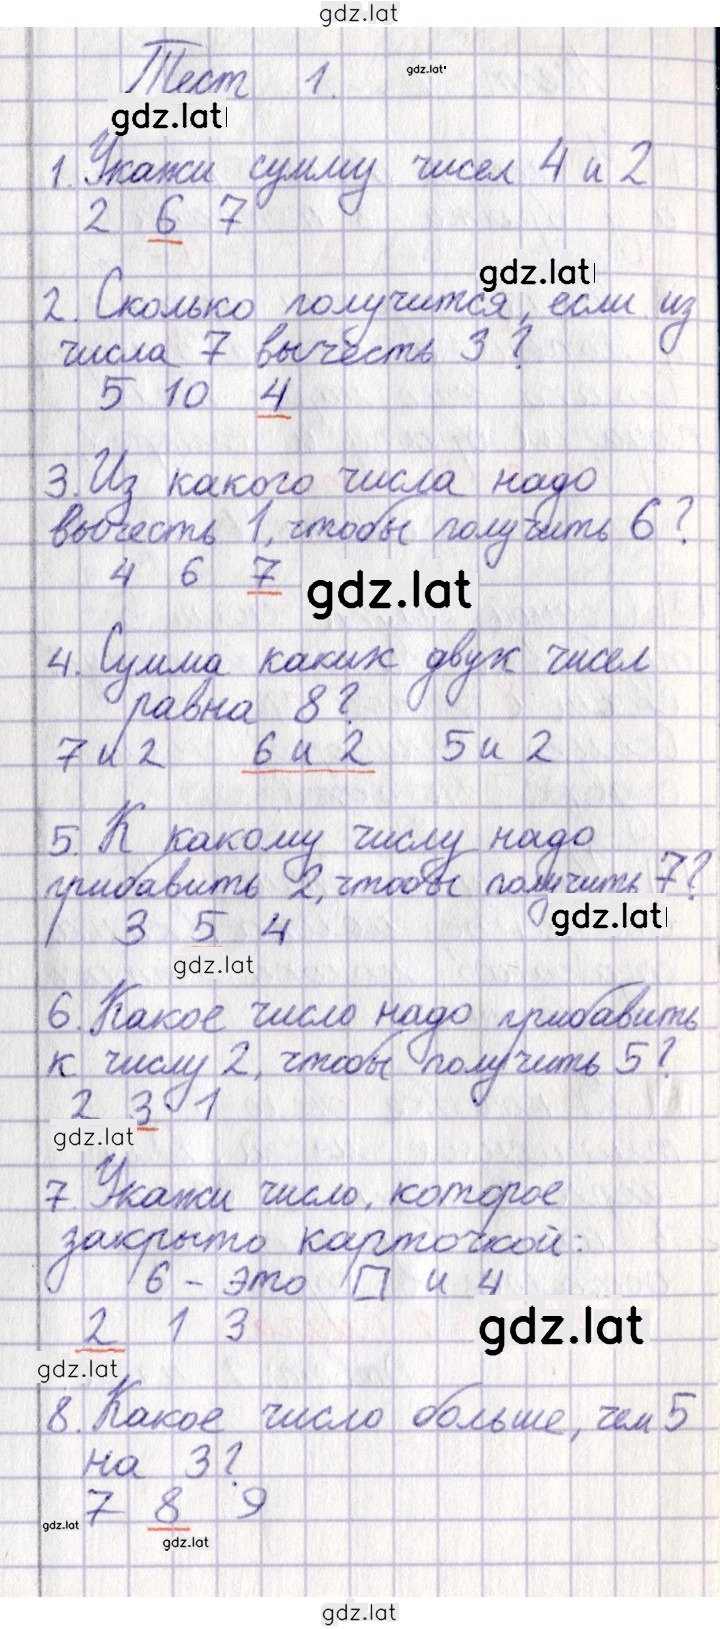 gdz.lat
Тест 1.
gdz.lat
gdz.lat
1. Укажи сумму чисел 4 и 2
2 6 7
gdz.lat
2. Сколько получится, если из
числа 7 вычесть 3?
5 10 4
3. Из какого числа надо
вычесть 1, чтобы получить 6?
4 6 7
gdz.lat
4. Сумма каких двух чисел
равна 8?
7 и 2 6 и 2 5 и 2
5. К какому числу надо
прибавить 2, чтобы получить 7?
3 5 4
gdz.lat
gdz.lat
6. Какое число надо прибавить
к числу 2, чтобы получить 5?
2 3 1
gdz.lat
7. Укажи число, которое
закрыто карточкой:
6 - это □ и 4
2 1 3
gdz.lat
gdz.lat
8. Какое число больше, чем 5
на 3?
7 8 9
gdz.lat
gdz.lat
gdz.lat